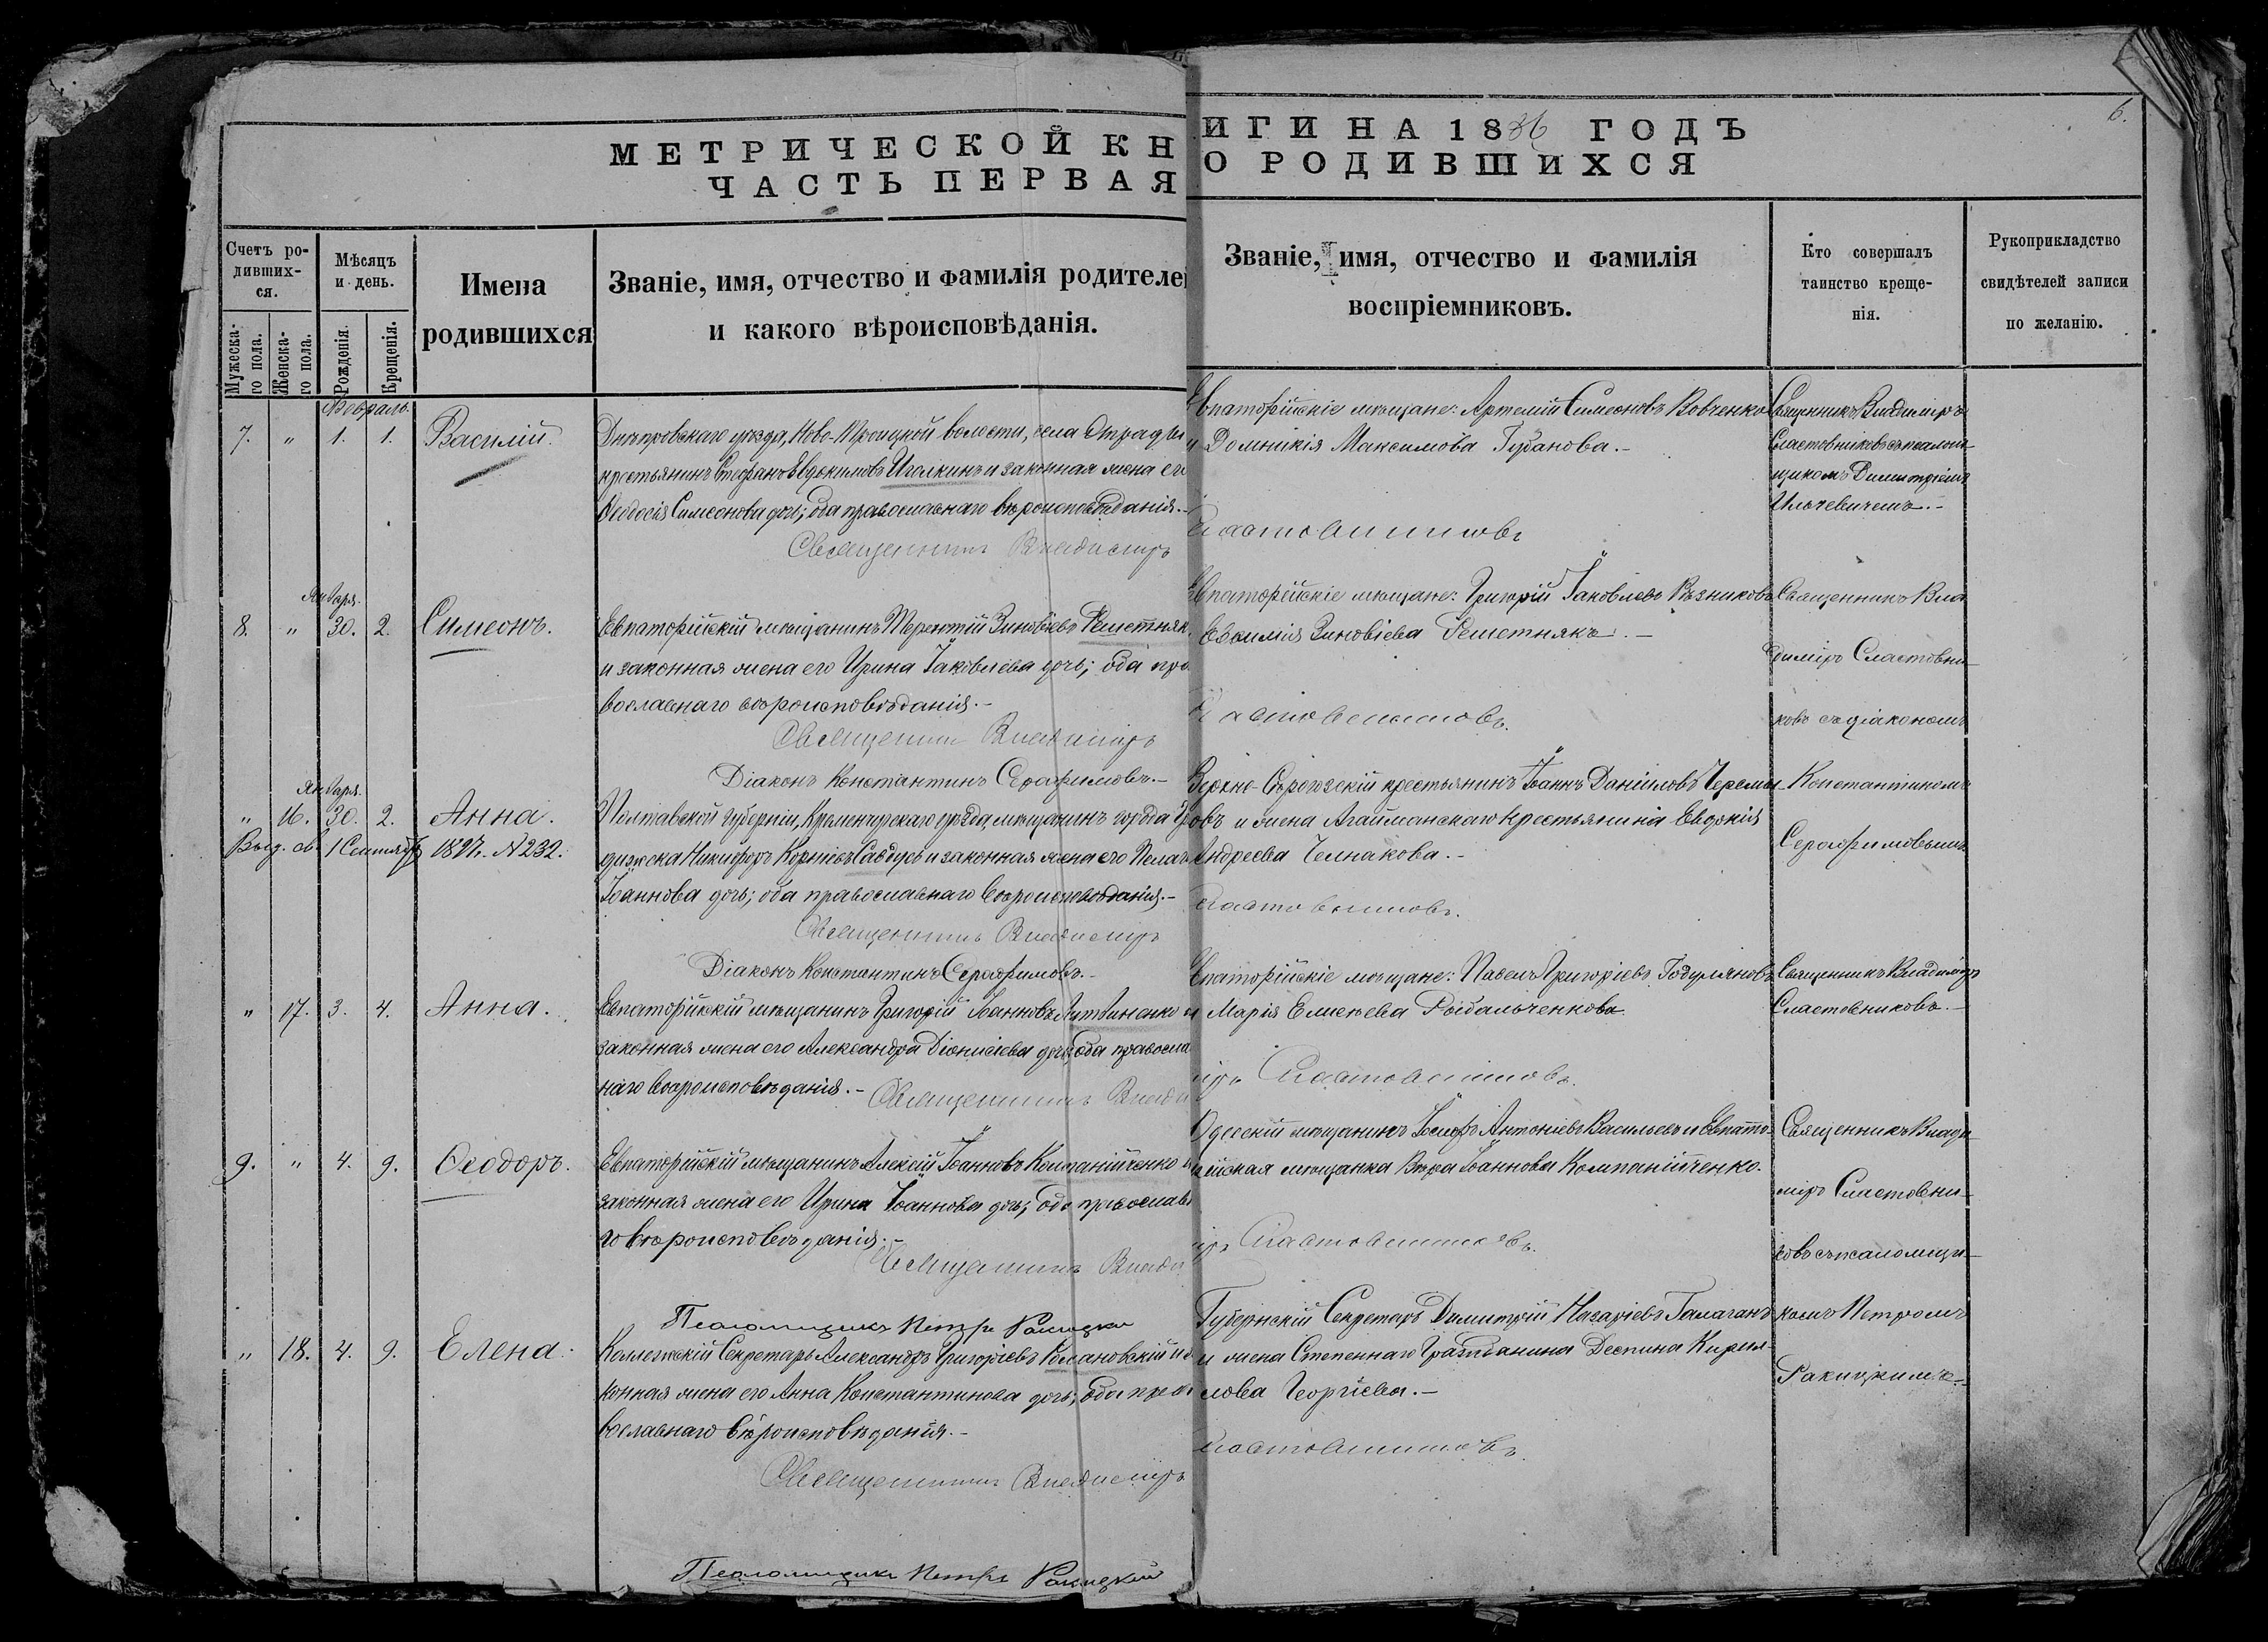 МЕТРИЧЕСКОЙ КНИГИ НА 1886 ГОДЪ
ЧАСТЬ ПЕРВАЯ О РОДИВШИХСЯ
6.
Счетъ ро-
дивших-
ся.
Мужеска-
го пола.
Женска-
го пола.
Мѣсяцъ
и день.
Рожденія.
Крещенія.
Имена
родившихся
Званіе, имя, отчество и фамилія родителе
и какого вѣроисповѣданія.
Званіе, имя, отчество и фамилія
воспріемниковъ.
Кто совершалъ
таинство креще-
нія.
Рукоприкладство
свидѣтелей записи
по желанію.
Февраль.
7. " 1. 1. Василій.
Днѣпровскаго уѣзда, Ново-Троицкой волости, села Отрады
крестьянинъ Стефанъ Евдокимовъ Иголкинъ и законная жена его
Ѳеодосія Симеонова дочь; оба православнаго вѣроисповѣданія.-
Священникъ Владимиръ Сластовниковъ
Евпаторійскіе мѣщане: Артемій Симеоновъ Вовченко
и Домникія Максимова Губанова.-
Священникъ Владиміръ
Сластовниковъ съ псалом-
щикомъ Димитріемъ
Илькевичемъ.-
Января.
8. " 30. 2. Симеонъ.
Евпаторійскій мѣщанинъ Терентій Зиновіевъ Решетняк
и законная жена его Ирина Іаковлева дочь; оба пра
вославнаго вѣроисповѣданія.-
Священникъ Владиміръ Сластовниковъ.
Діаконъ Константинъ Серафимовъ.-
Евпаторійскіе мѣщане: Григорій Іаковлевъ Вѣзниковъ
Евѳимія Зиновіева Решетнякъ.-
Священникъ Вла
диміръ Сластовни-
ковъ съ діакономъ
Константиномъ
Серафимовымъ.
Января.
" 16. 30. 2. Анна.
Выд. св. 1 Сентября 1897. N 232.
Полтавской губерніи, Кременчугскаго уѣзда, мѣщанинъ города Гра
дижска Никифоръ Корніевъ Савдусь и законная жена его Пелаг
Іоаннова дочь; оба православнаго вѣроисповѣданія.-
Священникъ Владиміръ Сластовниковъ.
Діаконъ Константинъ Серафимовъ.-
Верхне-Сѣрогозскій крестьянинъ Іоаннъ Даніиловъ Черемы-
овъ и жена Агайманскаго крестьянина Евдокія
Андреева Челнакова.-
" 17. 3. 4. Анна.
Евпаторійскій мѣщанинъ Григорій Іоанновъ Литвиненко и
законная жена его Александра Діонисіева дочь; оба правосла
наго вѣроисповѣданія.-
Священникъ Владиміръ Сластовниковъ.
Евпаторійскіе мѣщане: Павелъ Григоріевъ Годуляновъ
и Марія Елисеева Рыбальченкова
Священникъ Владиміръ
Сластовниковъ.-
9. " 4. 9. Ѳеодоръ.
Евпаторійскій мѣщанинъ Алексій Іоанновъ Компанійченко и
законная жена его Ирина Іоаннова дочь; оба православн
го вѣроисповѣданія.-
Священникъ Владиміръ Сластовниковъ.
Псаломщикъ Петръ Ракицкій
Одесскій мѣщанинъ Іосифъ Антоніевъ Васильевъ и Евпато-
рійская мѣщанка Вѣра Іоаннова Компанійченко.
Священникъ Влади-
міръ Сластовни-
ковъ съ псаломщи-
комъ Петромъ
Ракицкимъ.-
" 18. 4. 9. Елена.
Коллежскій Секретарь Александръ Григоріевъ Романовскій и за
конная жена его Анна Константинова дочь; оба пра
вославнаго вѣроисповѣданія.-
Священникъ Владиміръ Сластовниковъ.
Псаломщикъ Петръ Ракицкій
Губернскій Секретарь Димитрій Назаріевъ Галаганъ
и жена Степеннаго Гражданина Деспина Кирил-
лова Георгіева.-